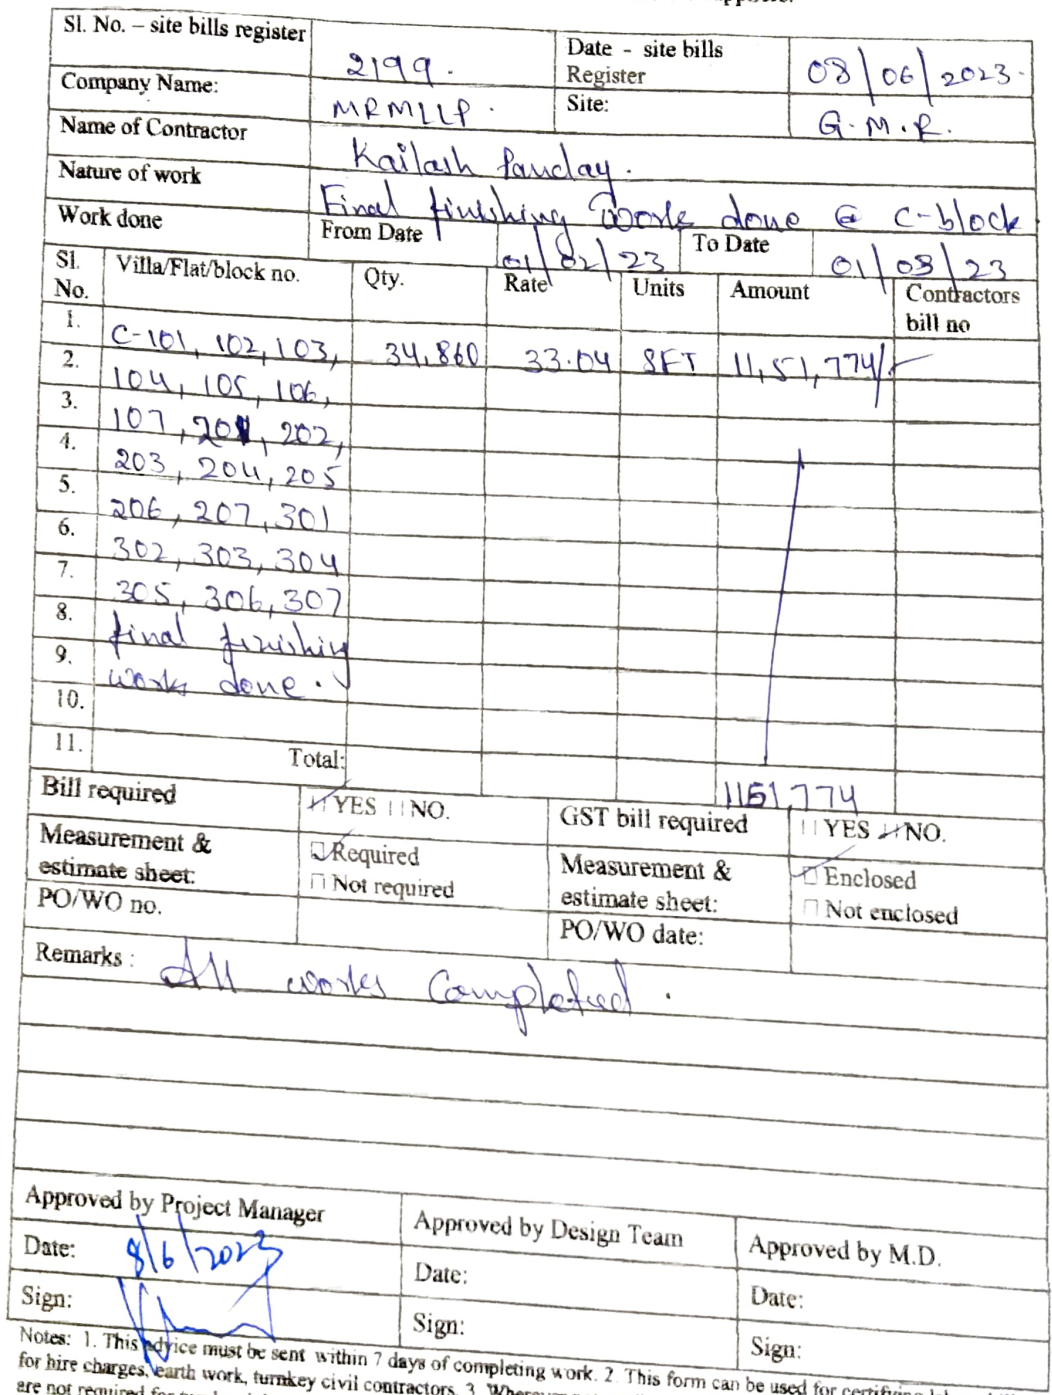 Sl. No. – site bills register 2199. Date - site bills Register 08/06/2023.
Company Name: MRMLLP. Site: G.M.R.
Name of Contractor Kailash Panday.
Nature of work Final finishing works done @ C-block
Work done From Date 01/02/23 To Date 01/03/23
Sl. No. Villa/Flat/block no. Qty. Rate Units Amount Contractors bill no
1. C-101, 102, 103, 34,860 33.04 SFT 11,51,774/-
2. 104, 105, 106,
3. 107, 201, 202,
4. 203, 204, 205
5. 206, 207, 301
6. 302, 303, 304
7. 305, 306, 307
8. final finishing
9. works done.
10.
11. Total: 1151,774
Bill required YES NO. GST bill required YES NO.
Measurement & estimate sheet: Required Not required Measurement & estimate sheet: Enclosed Not enclosed
PO/WO no. PO/WO date:
Remarks : All works Completed.
Approved by Project Manager Approved by Design Team Approved by M.D.
Date: 8/6/2023 Date: Date:
Sign: Sign: Sign:
Notes: 1. This advice must be sent within 7 days of completing work. 2. This form can be used for certifying
for hire charges, earth work, turnkey civil contractors. 3.
are not required for